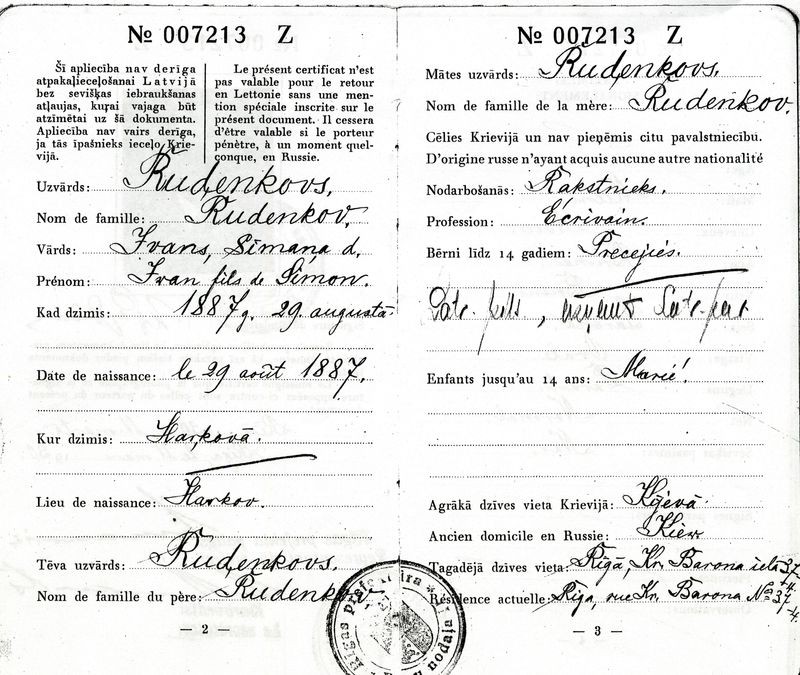 № 007213 Z
Šī apliecība nav derīga
atpakaļieceļošanai Latvijā
bez sevišķas iebraukšanas
atļaujas, kuŗai vajaga būt
atzīmētai uz šā dokumenta.
Apliecība nav vairs derīga,
ja tās īpašnieks ieceļo Krie-
vijā.
Le présent certificat n'est
pas valable pour le retour
en Lettonie sans une men-
tion spéciale inscrite sur le
présent document. Il cessera
d'être valable si le porteur
pénètre, à un moment quel-
conque, en Russie.
Uzvārds: Rudenkovs.
Nom de famille: Rudenkov.
Vārds: Ivans, Sīmaņa d.
Prénom: Ivan fils de Simon.
Kad dzimis: 1887g. 29. augustā
Date de naissance: le 29 août 1887.
Kur dzimis: Harkovā.
Lieu de naissance: Harkov.
Tēva uzvārds: Rudenkovs.
Nom de famille du père: Rudenkov
— 2 —
№ 007213 Z
Mātes uzvārds: Rudenkovs.
Nom de famille de la mère: Rudenkov.
Cēlies Krievijā un nav pieņēmis citu pavalstniecību.
D'origine russe n'ayant acquis aucune autre nationalité
Nodarbošanās: Rakstnieks.
Profession: Écrivain.
Bērni līdz 14 gadiem: Precejies.
Enfants jusqu'au 14 ans: Marié!
Agrākā dzīves vieta Krievijā: Kijevā
Ancien domicile en Russie: Kiew
Tagadējā dzīves vieta: Rīgā, Kr. Barona ielā 37
-4.
Résidence actuelle: Rīga, rue Kr. Barona № 37
-4.
— 3 —
Rīgas prefektūra
nodaļa